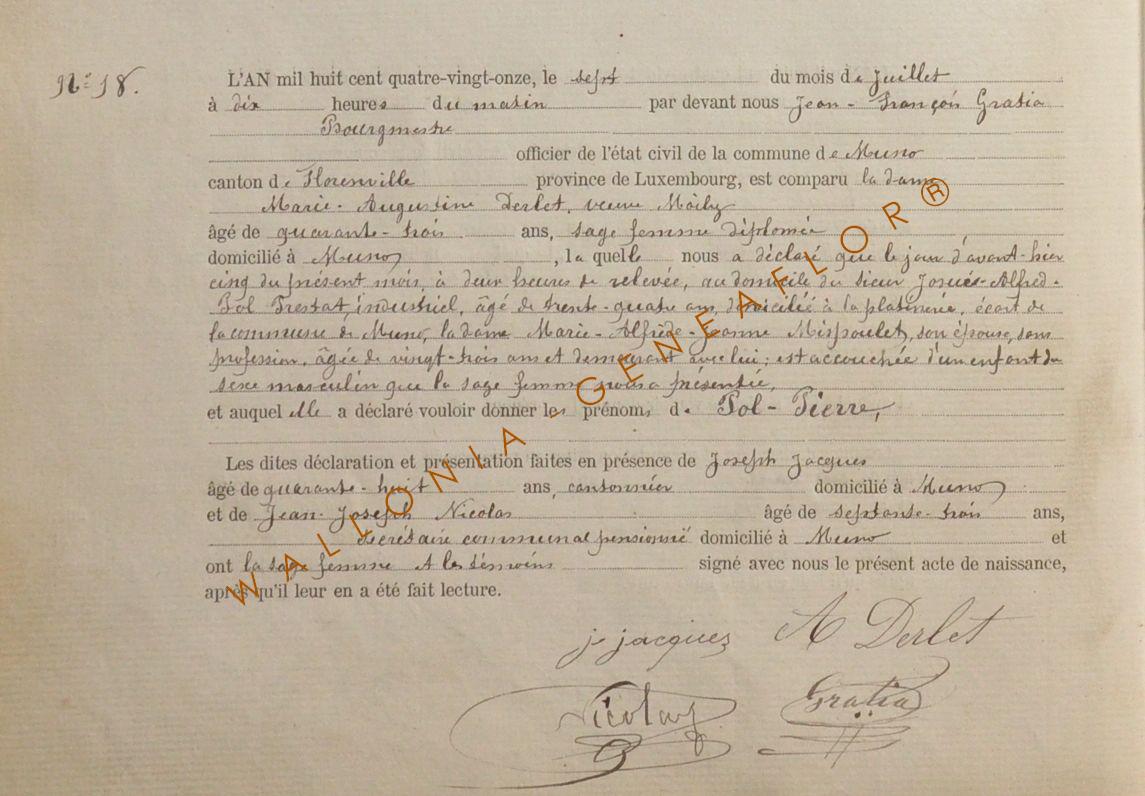 N° 18.
L'AN mil huit cent quatre-vingt-onze, le sept du mois de Juillet
à dix heures du matin par devant nous Jean-François Gratia
Bourgmestre
officier de l'état civil de la commune de Muno
canton de Florenville province de Luxembourg, est comparu la dame
Marie-Augustine Derlet, veuve
âgé de quarante-trois ans, sage femme diplomée
domicilié à Muno, laquelle nous a déclaré que le jour d'avant-hier
cinq du présent mois, à deux heures de relevée, au domicile du sieur Josué-Alfred-
Pol Trestat, industriel, âgé de trente-quatre ans, domicilié à la platinerie, écart de
la commune de Muno, la dame Marie-Alfrède-Jeanne Mispoulet, son épouse, sans
profession, âgée de vingt-trois ans et demeurant avec lui; est accouchée d'un enfant du
sexe masculin que la sage femme nous a présentée,
et auquel elle a déclaré vouloir donner les prénoms de Pol-Pierre,
Les dites déclaration et présentation faites en présence de Joseph Jacques
âgé de quarante-huit ans, cantonnier domicilié à Muno
et de Jean-Joseph Nicolas âgé de septante-trois ans,
secrétaire communal pensionné domicilié à Muno et
ont la sage femme et les témoins signé avec nous le présent acte de naissance,
après qu'il leur en a été fait lecture.
j jacques A Derlet
Nicolas Gratia
WALLONIA-GENEAFLOR®